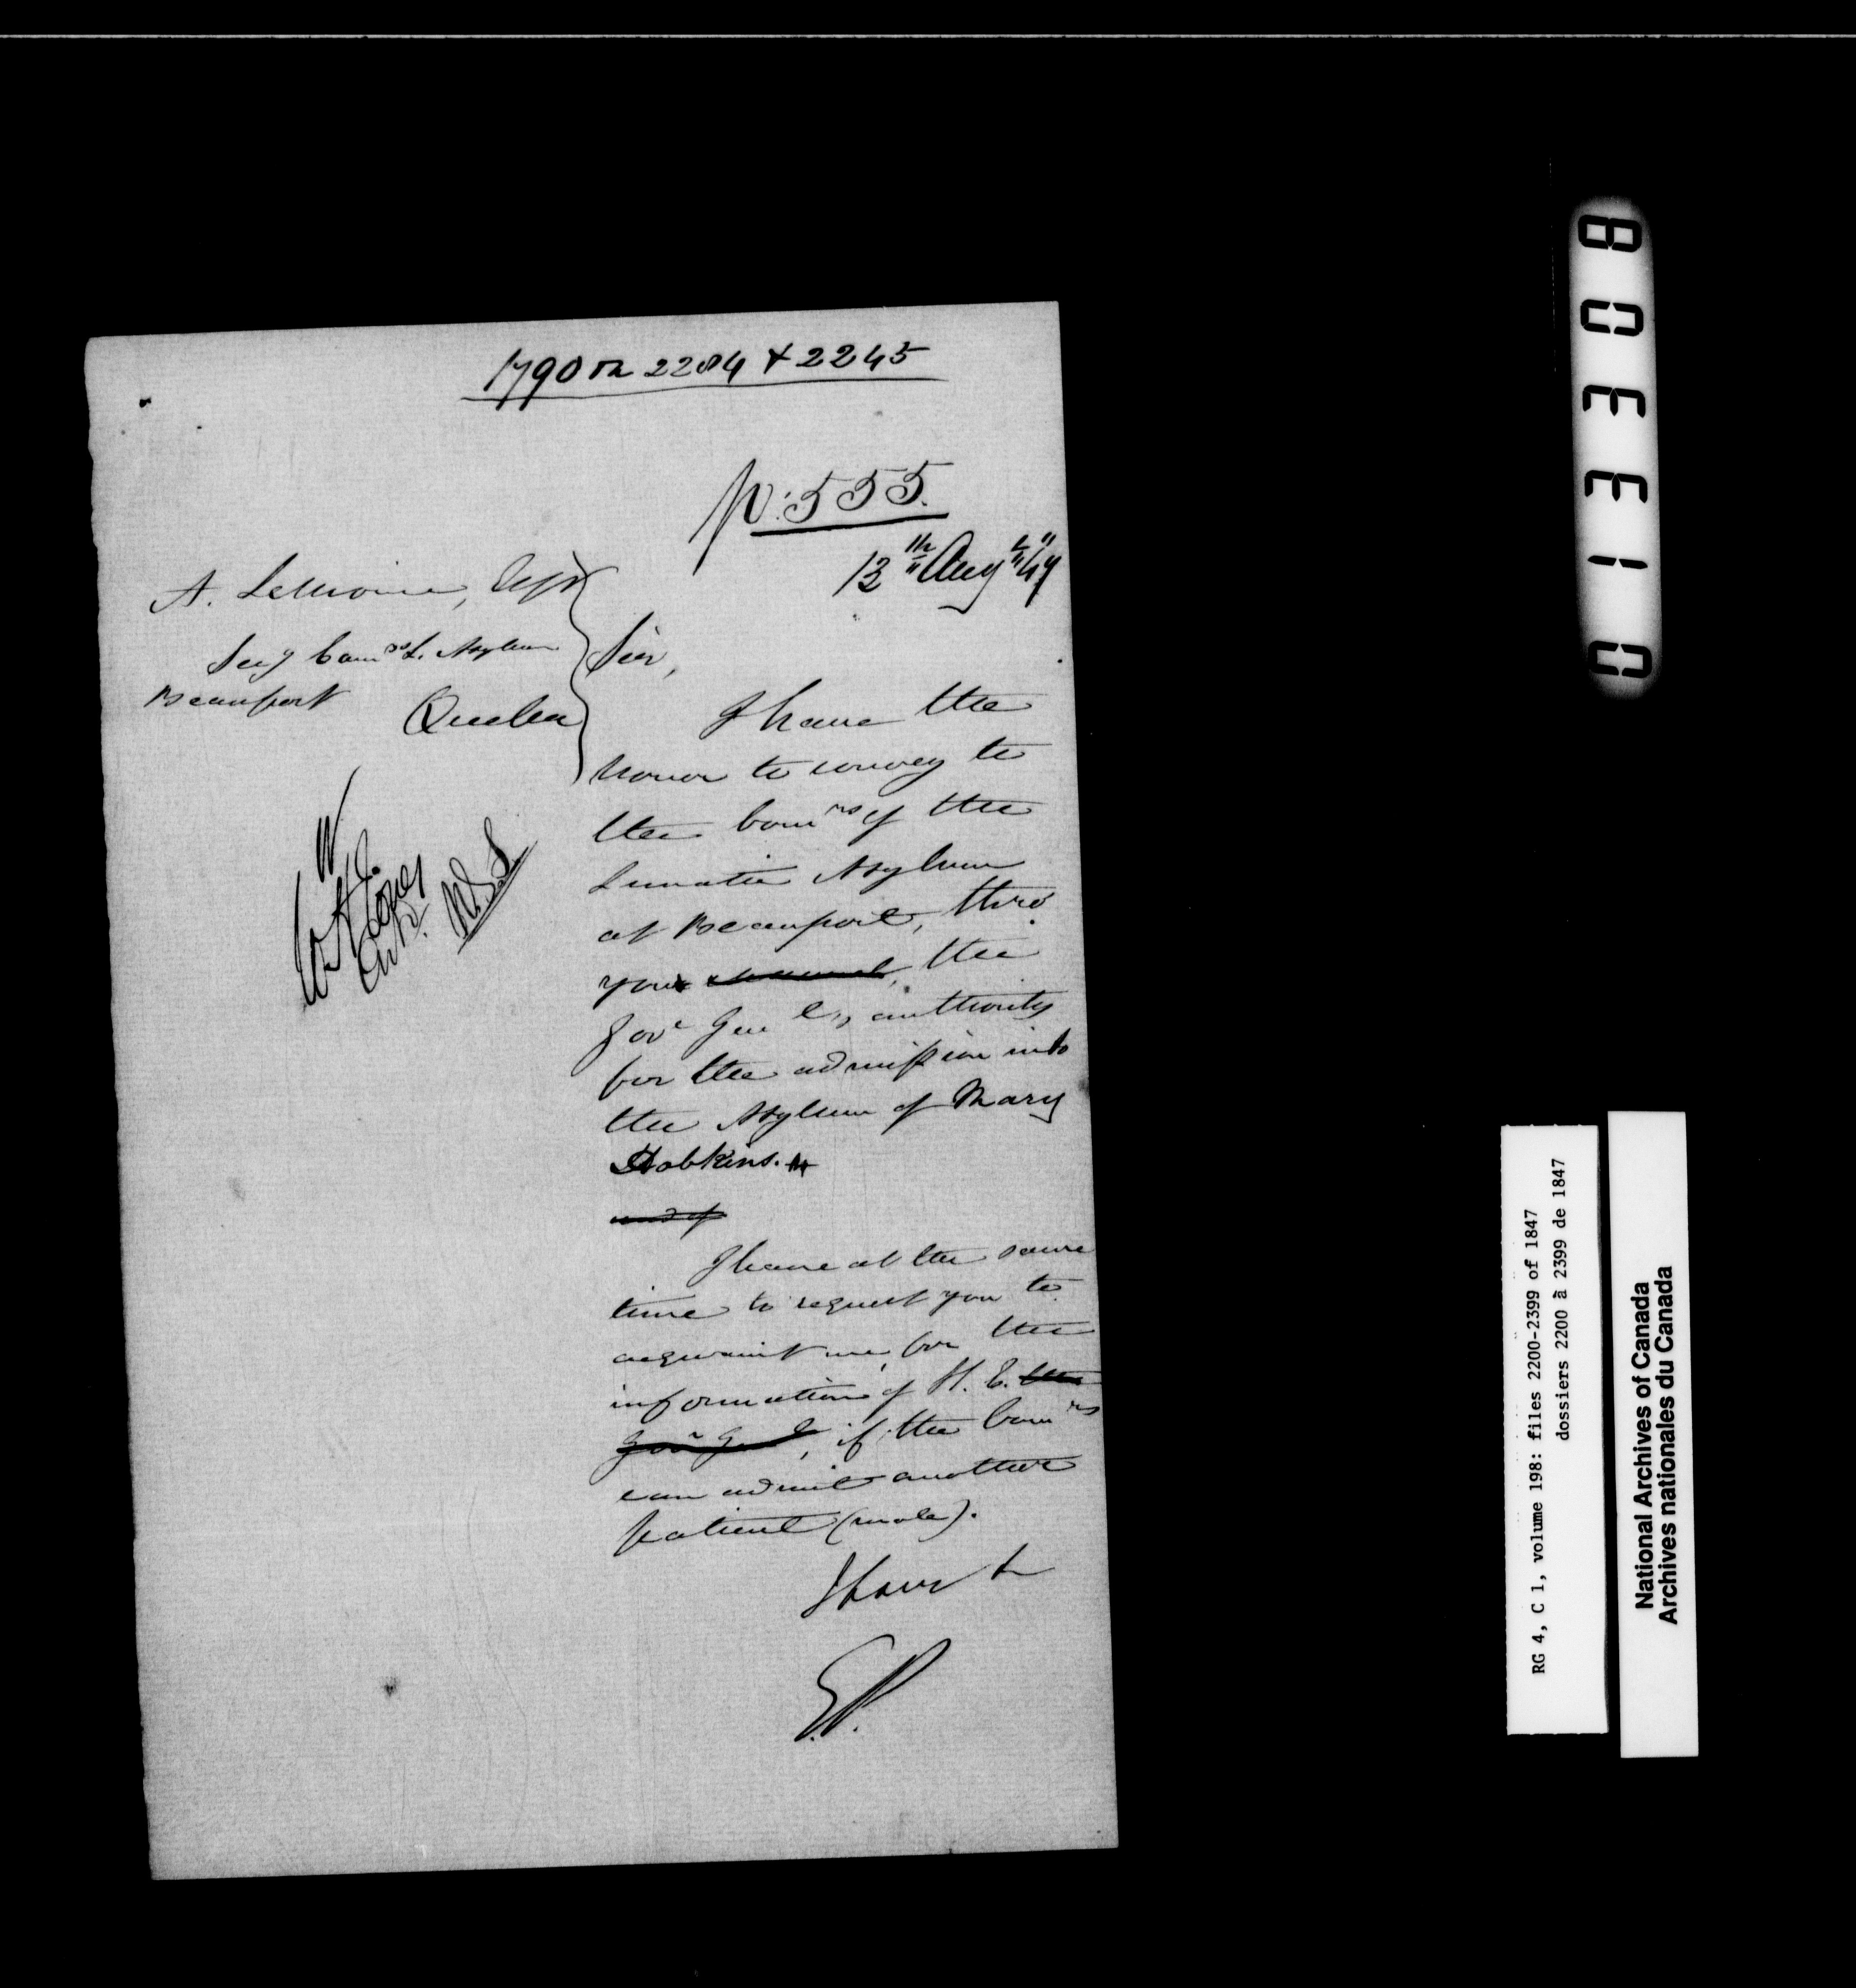 1790 on 2204 & 2245
p: 555.
13th Augt 47
A. Lemoine, Esqr
Secy Comrs L. Asylum
Beauport
Quebec
Sir,
I have the
honor to convey to
the Comrs of the
Lunatic Asylum
at Beauport, thro'
your channel, the
Govr Genl's authority
for the admission into
the Asylum of Mary
Hobkins.
and of
I have at the same
time to request you to
acquaint me, for the
information of H. E. the
Govr Genl, if the Comrs
can admit another
patient (male).
I have &
E.P.
W
W. H. Jones
013308
RG 4, C 1, volume 198: files 2200-2399 of 1847
dossiers 2200 à 2399 de 1847
National Archives of Canada
Archives nationales du Canada